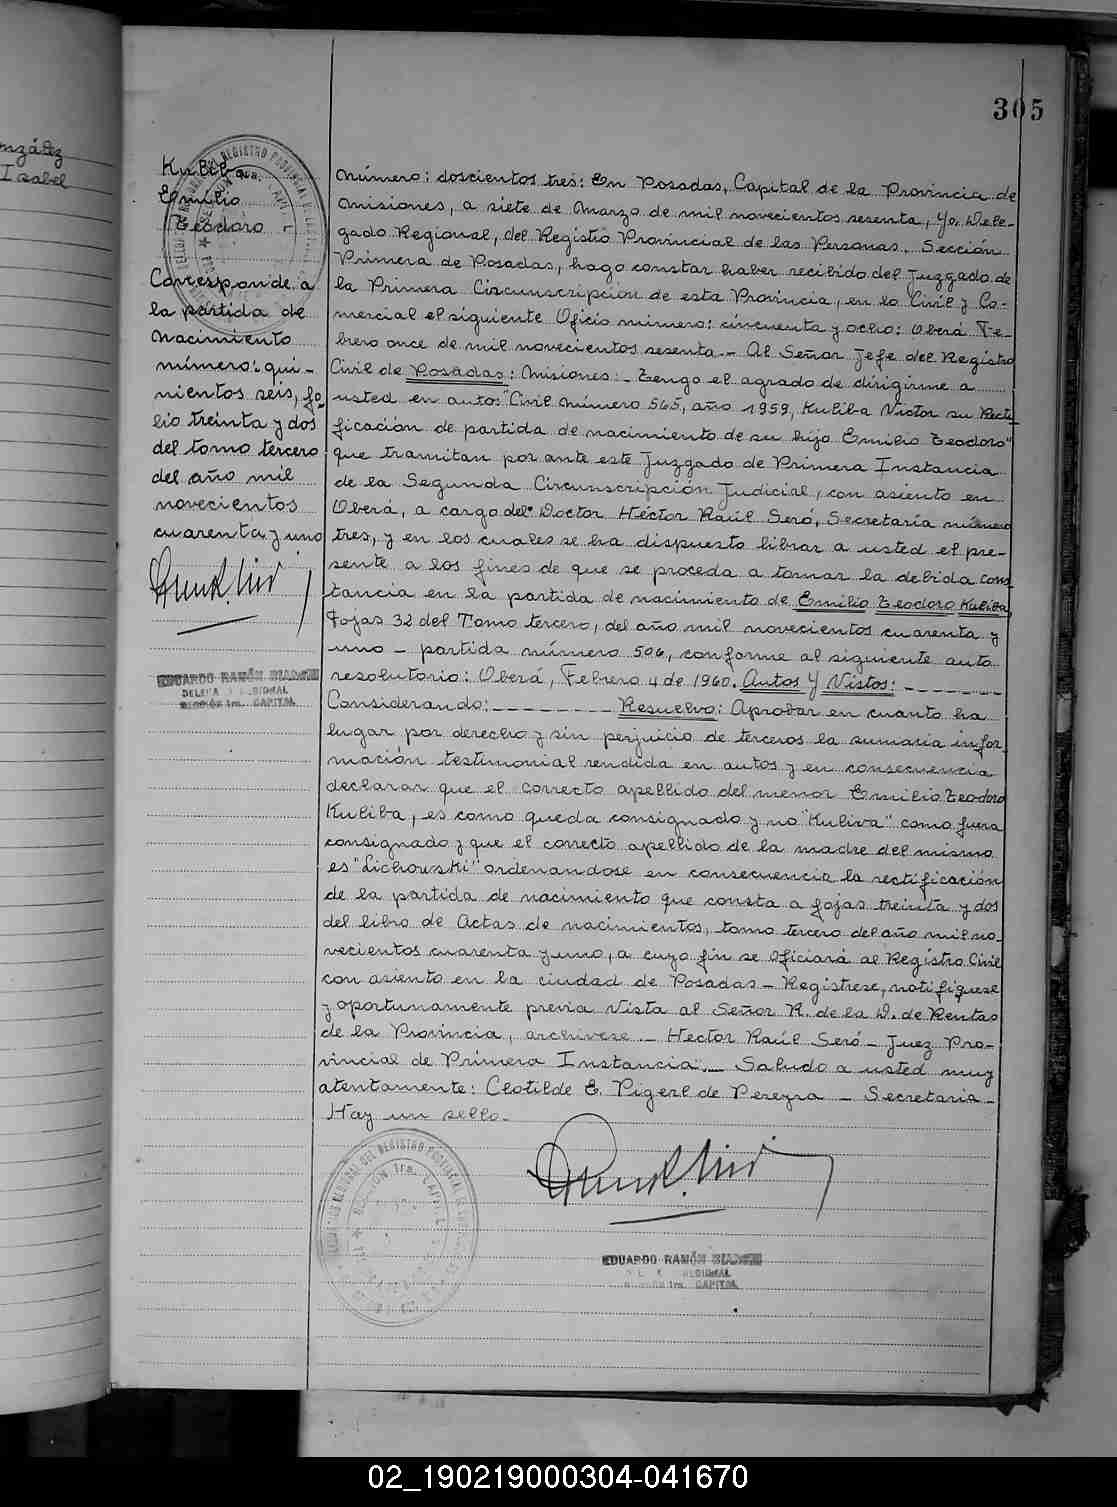 305
nzález
Isabel
Kuliba
Emilio
Teodoro
Corresponde a
la partida de
nacimiento
número: qui-
nientos seis, fo-
lio treinta y dos
del tomo tercero
del año mil
novecientos
cuarenta y uno
EDUARDO RAMÓN BIANCHI
REGIONAL
SECCIÓN 1ra. CAPITAL
Número: doscientos tres: En Posadas, Capital de la Provincia de
Misiones, a siete de Marzo de mil novecientos sesenta, Yo, Dele-
gado Regional, del Registro Provincial de las Personas, Sección
Primera de Posadas, hago constar haber recibido del Juzgado de
la Primera Circunscripción de esta Provincia, en lo Civil y Co-
mercial el siguiente Oficio número: cincuenta y ocho: Oberá Fe-
brero once de mil novecientos sesenta.- Al Señor Jefe del Registro
Civil de Posadas: Misiones:- Tengo el agrado de dirigirme a
usted en autos "Civil número 565, año 1959, Kuliba Victor su Recti-
ficación de partida de nacimiento de su hijo Emilio Teodoro"
que tramitan por ante este Juzgado de Primera Instancia
de la Segunda Circunscripción Judicial, con asiento en
Oberá, a cargo del Doctor Héctor Raúl Seró, Secretaría número
tres, y en los cuales se ha dispuesto librar a usted el pre-
sente a los fines de que se proceda a tomar la debida cons-
tancia en la partida de nacimiento de Emilio Teodoro Kuliba
Fojas 32 del Tomo tercero, del año mil novecientos cuarenta y
uno - partida número 506, conforme al siguiente auto
resolutorio: Oberá, Febrero 4 de 1960. Autos Y Vistos: --------
Considerando: -------- Resuelvo: Aprobar en cuanto ha
lugar por derecho y sin perjuicio de terceros la sumaria infor-
mación testimonial rendida en autos y en consecuencia
declarar que el correcto apellido del menor Emilio Teodoro
Kuliba, es como queda consignado y no "Kuliva" como fuera
consignado y que el correcto apellido de la madre del mismo
es "Lichowski" ordenandose en consecuencia la rectificación
de la partida de nacimiento que consta a fojas treinta y dos
del libro de Actas de nacimientos, tomo tercero del año mil no-
vecientos cuarenta y uno, a cuyo fin se oficiará al Registro Civil
con asiento en la ciudad de Posadas - Registrese, notifiquese
y oportunamente previa Vista al Señor R. de la D. de Rentas
de la Provincia, archivese.- Hector Raúl Seró - Juez Pro-
vincial de Primera Instancia".- Saludo a usted muy
atentamente: Clotilde E. Pigerl de Pereyra - Secretaria -
Hay un sello.-
EDUARDO RAMÓN BIANCHI
REGIONAL
SECCIÓN 1ra. CAPITAL
02_190219000304-041670